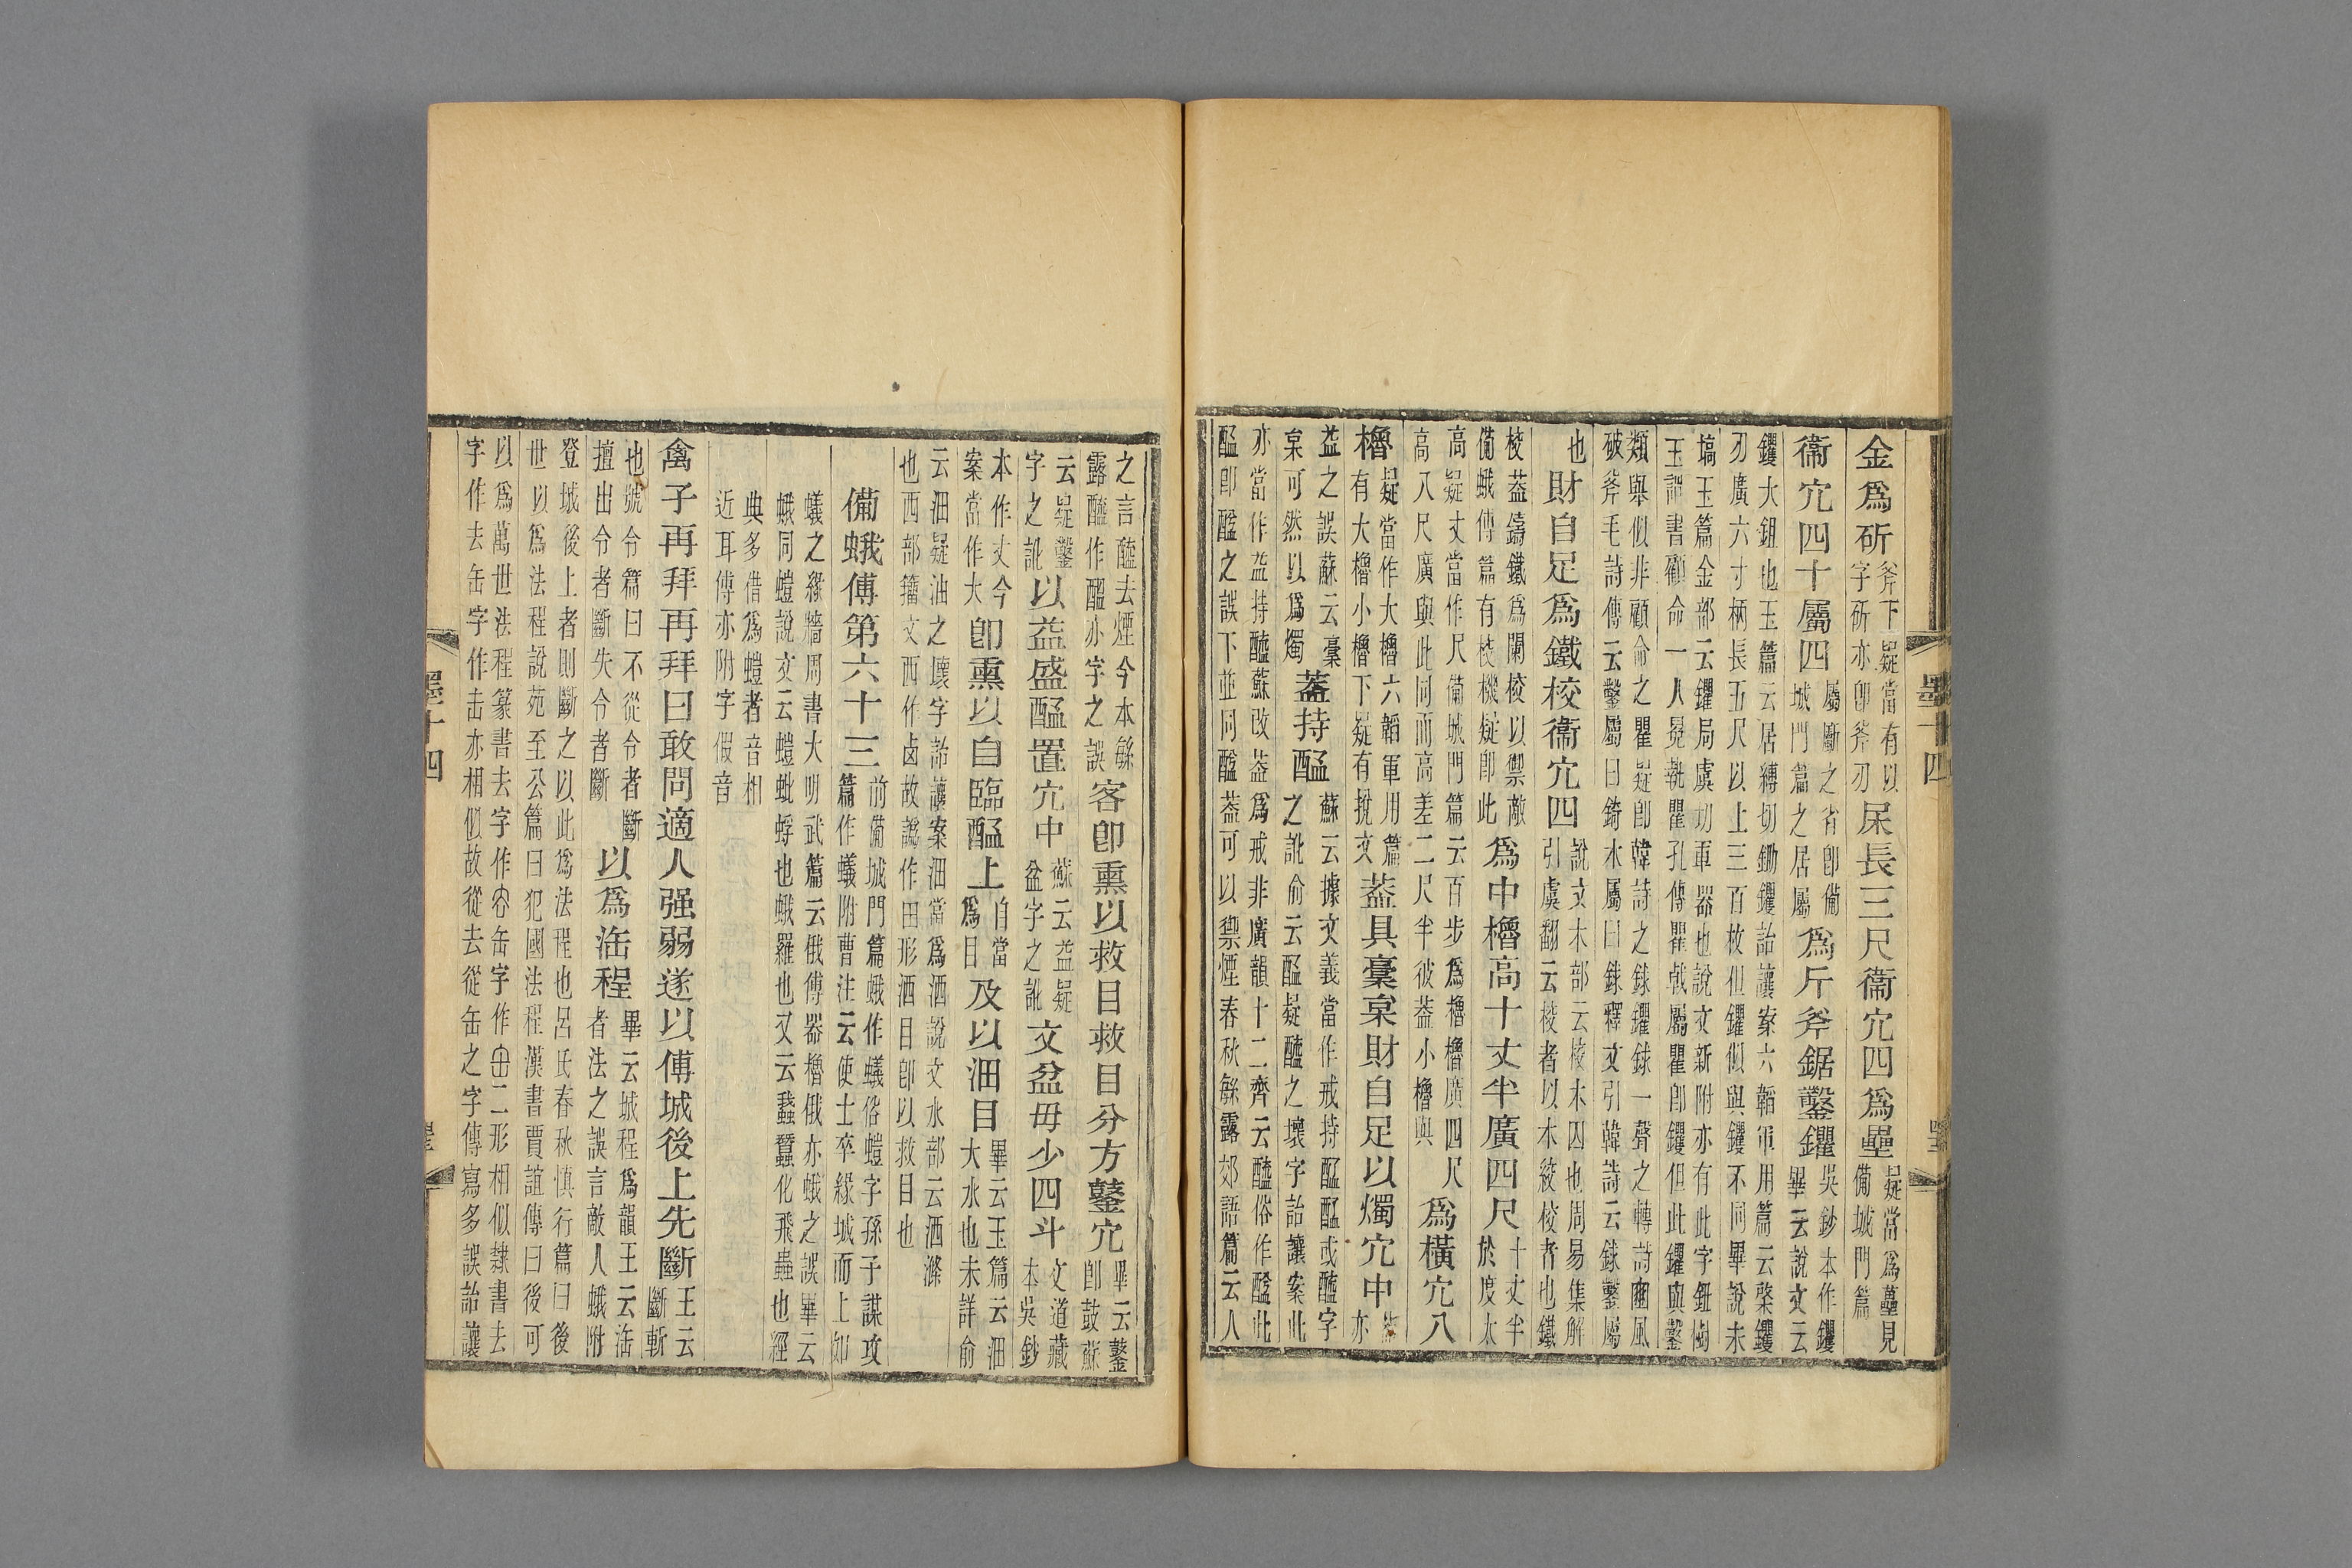 金爲斫斧下疑當有以字斫亦卽斧刃杘長三尺衞穴四爲壘疑當爲蘲見備城門篇
衞穴四十屬四屬斸之省卽備城門篇之居屬爲斤斧鋸鑿钁吳鈔本作钁畢云說文云
钁大鉏也玉篇云居縛切鋤钁詒讓案六韜軍用篇云棨钁
刃廣六寸柄長五尺以上三百枚但钁似與钁不同畢說未
塙玉篇金部云鑺局虞切軍器也說文新附亦有此字鈕樹
玉謂書顧命一人冕執瞿孔傳瞿戟屬瞿卽鑺但此鑺與鑿
類舉似非顧命之瞿疑卽韓詩之銶鑺銶一聲之轉詩豳風
破斧毛詩傳云鑿屬曰錡木屬曰銶釋文引韓詩云銶鑿屬
也財自足爲鐵校衞穴四說文木部云校木囚也周易集解引虞翻云校者以木絞校者也鐵
校葢鑄鐵爲闌校以禦敵備蛾傅篇有校機疑卽此爲中櫓高十丈半廣四尺十丈半於度太
高疑丈當作尺備城門篇云百步爲櫓櫓廣四尺高八尺廣與此同而高差二尺半彼葢小櫓與爲橫穴八
櫓疑當作大櫓六韜軍用篇有大櫓小櫓下疑有挩文葢具稾枲財自足以燭穴中葢亦
益之誤蘇云稾枲可然以爲燭葢持醖蘇云據文義當作戒持醖醖或醯字之訛俞云醖疑醯之壞字詒讓案此
亦當作益持醯蘇改葢爲戒非廣韻十二齊云醯俗作醘此
醖卽醘之誤下並同醘葢可以禦煙春秋繁露郊語篇云人
墨十四
之言醯去煙今本繁露醯作醖亦字之誤客卽熏以救目救目分方鼛穴畢云鼛卽鼓蘇
云疑鑿字之訛以益盛醖置穴中蘇云益疑盆字之訛文盆毋少四斗文道藏本吳鈔
本作丈今案當作大卽熏以自臨醖上自當爲目及以沺目畢云玉篇云沺大水也未詳俞
云沺疑油之壞字詒讓案沺當爲洒說文水部云洒滌
也西部籀文西作卤故譌作田形洒目卽以救目也
備蛾傅第六十三前備城門篇蛾作蟻俗螘字孫子謀攻篇作蟻附曹注云使士卒緣城而上如
蟻之緣牆周書大明武篇云俄傅器櫓俄亦蛾之誤畢云
蛾同螘說文云螘蚍蜉也蛾羅也又云蠭蠶化飛蟲也經
典多借爲螘者音相
近耳傅亦附字假音
禽子再拜再拜曰敢問適人强弱遂以傅城後上先斷王云斷斬
也號令篇曰不從令者斷擅出令者斷失令者斷以爲㳒程畢云城程爲韻王云㳒者法之誤言敵人蛾附
登城後上者則斷之以此爲法程也呂氏春秋愼行篇曰後
世以爲法程說苑至公篇曰犯國法程漢書賈誼傳曰後可
以爲萬世法程篆書去字作𠫓缶字作𦈢二形相似隸書去
字作去缶字作击亦相似故從去從缶之字傳寫多誤詒讓
墨十四